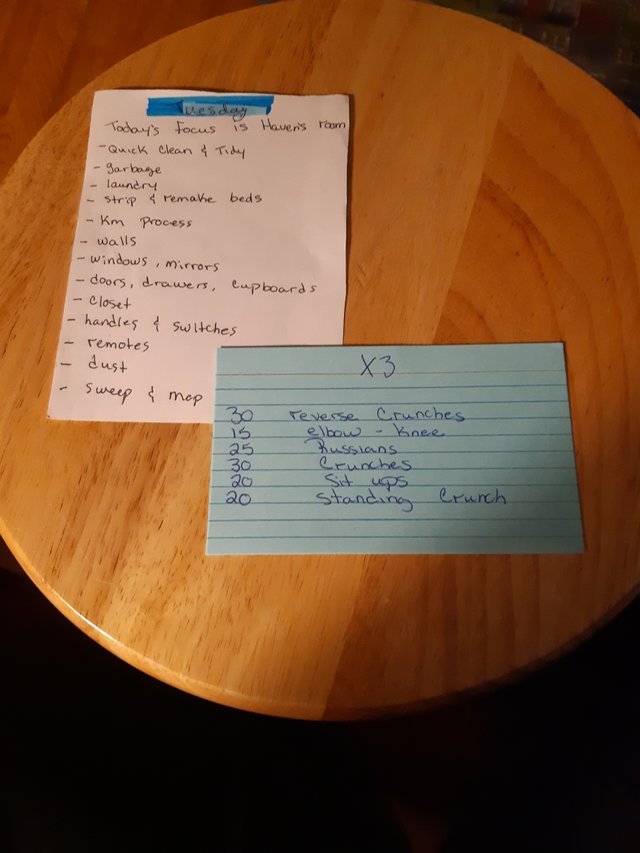 Tuesday
Today's Focus is Haven's room
- Quick Clean & Tidy
- garbage
- laundry
- strip & remake beds
- Km Process
- walls
- windows, mirrors
- doors, drawers, cupboards
- closet
- handles & switches
- remotes
- dust
- sweep & mop
X3
30 reverse Crunches
15 elbow - Knee
25 Russians
30 Crunches
20 Sit ups
20 Standing Crunch